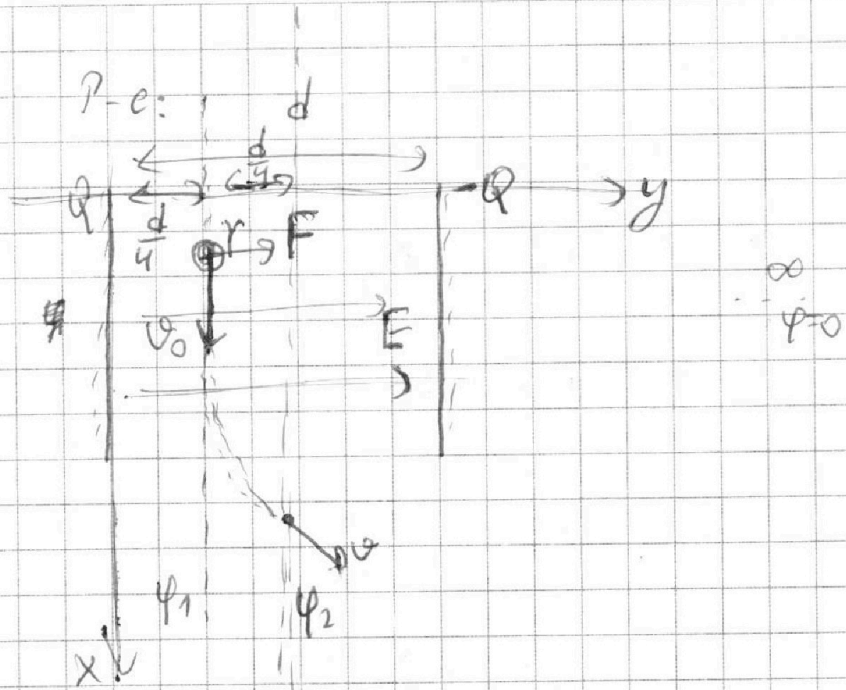 Р-е:
d
d/4
Q
-Q
y
d/4
γ
F
∞
φ=0
v₀
E
v
φ₁
φ₂
x